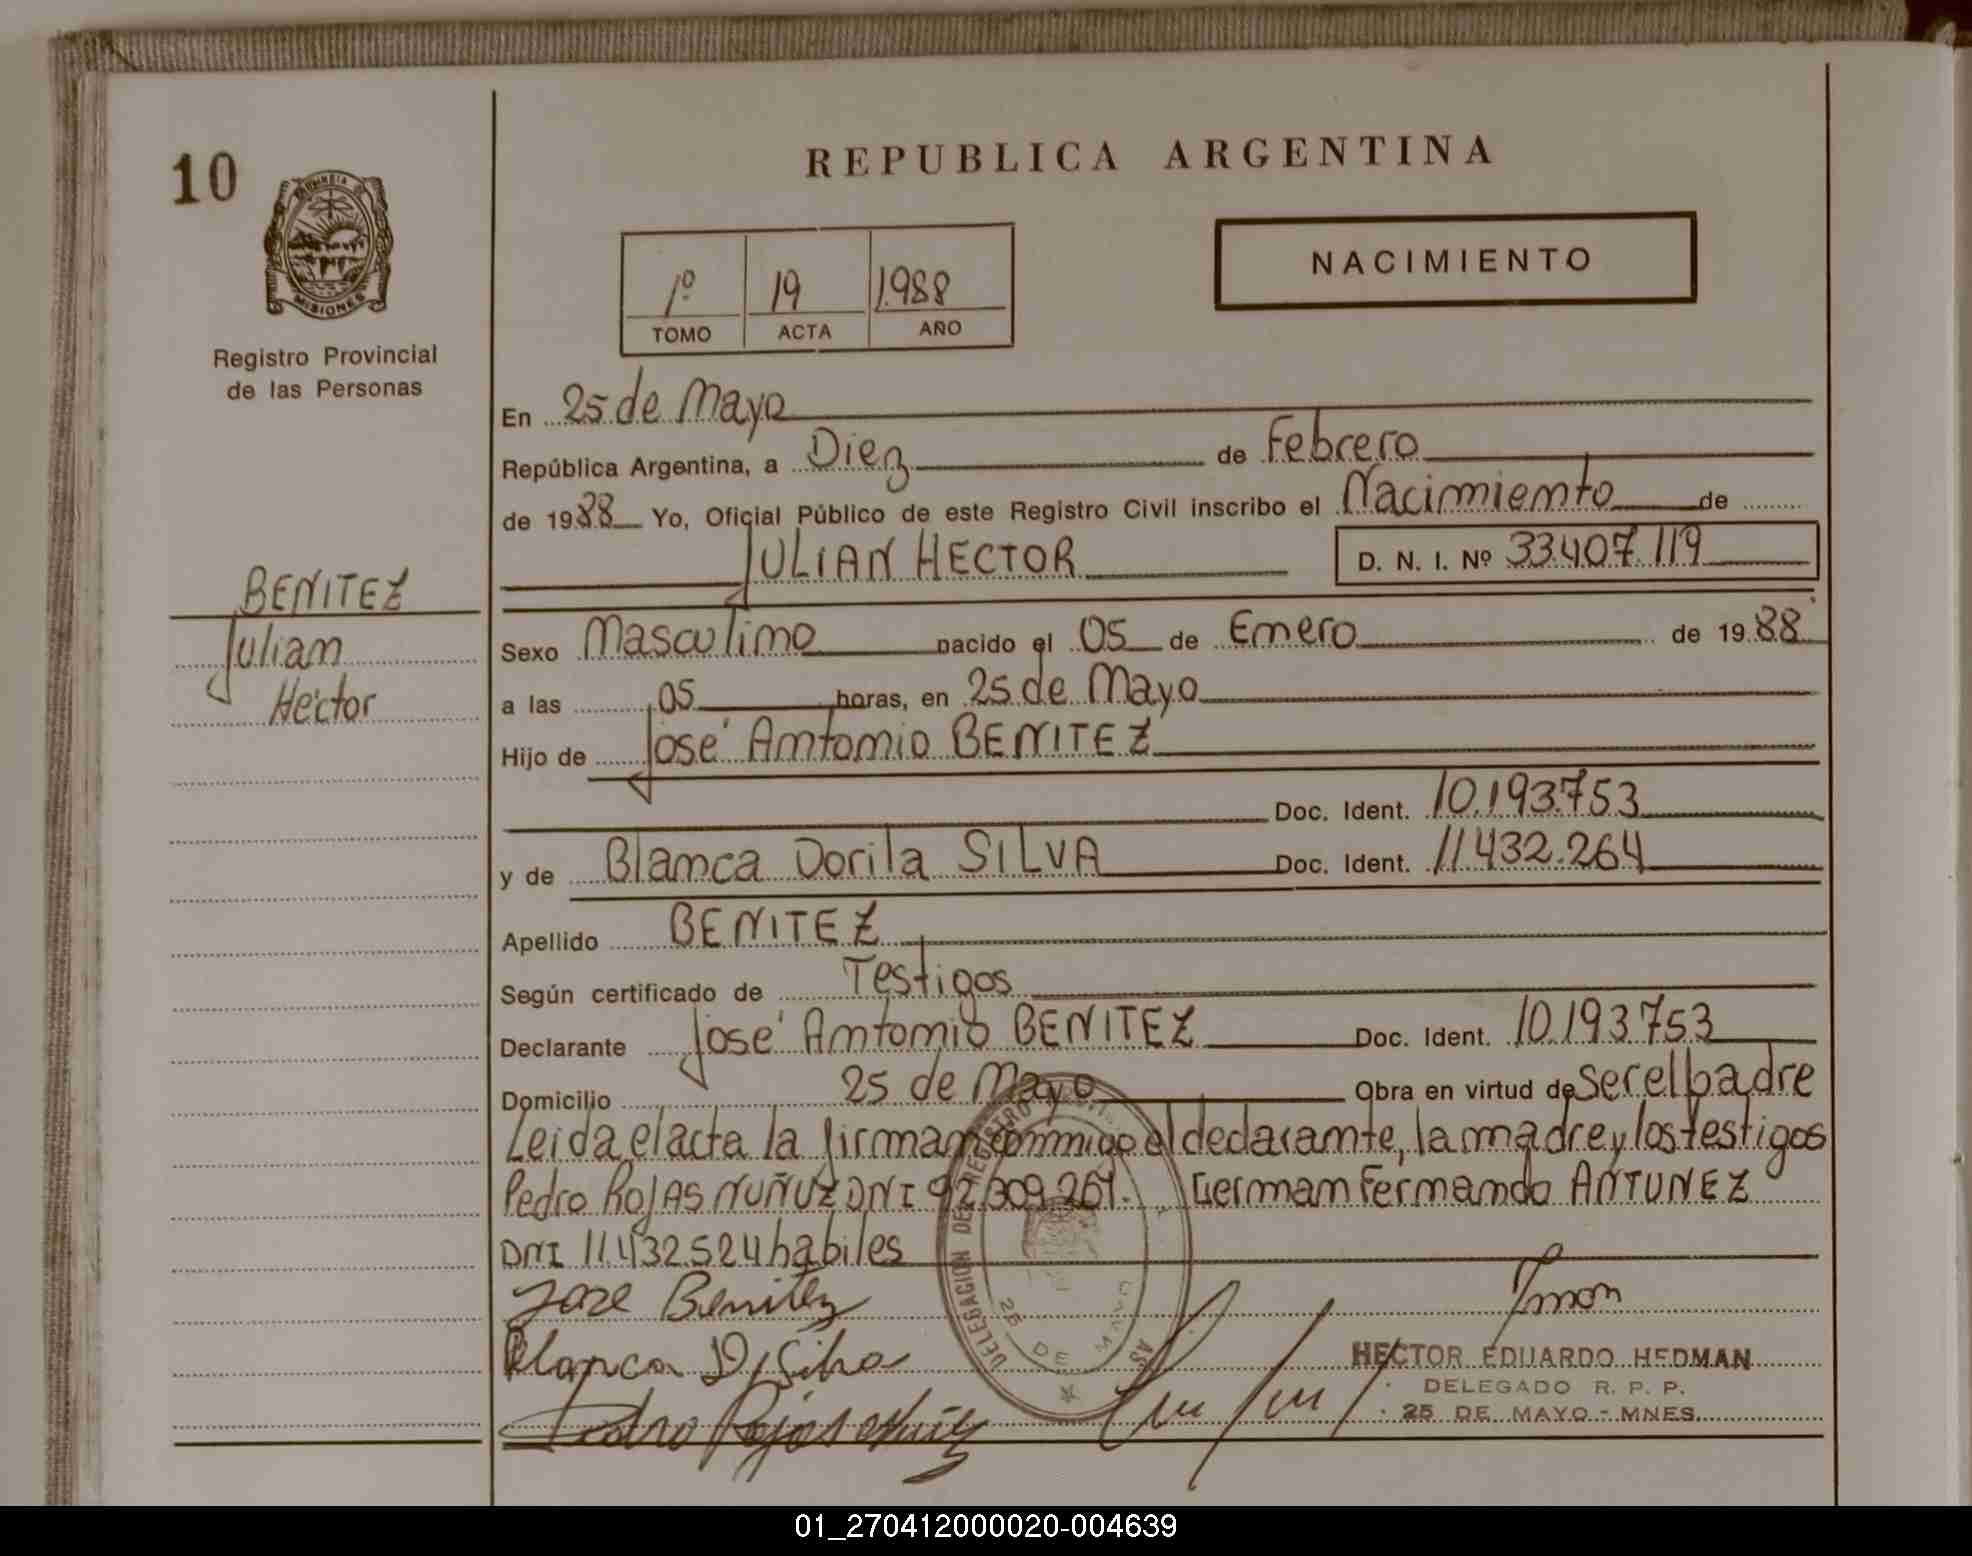 10
PROVINCIA DE
MISIONES
Registro Provincial
de las Personas
BENITEZ
Julian
Héctor
REPUBLICA ARGENTINA
1º 19 1988
TOMO ACTA AÑO
NACIMIENTO
En 25 de Mayo
República Argentina, a Diez de Febrero
de 1988 Yo, Oficial Público de este Registro Civil inscribo el Nacimiento de
JULIAN HECTOR D. N. I. Nº 33.407.119
Sexo Masculino nacido el 05 de Enero de 1988
a las 05 horas, en 25 de Mayo
Hijo de José Antonio BENITEZ
Doc. Ident. 10.193.753
y de Blanca Dorila SILVA Doc. Ident. 11.432.264
Apellido BENITEZ
Según certificado de Testigos
Declarante José Antonio BENITEZ Doc. Ident. 10.193.753
Domicilio 25 de Mayo Obra en virtud de ser el padre
Leida el acta la firman conmigo el declarante, la madre y los testigos
Pedro ROJAS NUÑUZ DNI 92.309.261. German Fernando ANTUNEZ
DNI 11.432.524 habiles
Jose Benitez
Blanca D. Silva
Pedro Rojas
DELEGACION DEL REGISTRO
25 DE MAYO
HECTOR EDUARDO HEDMAN
DELEGADO R. P. P.
25 DE MAYO - MNES.
01_270412000020-004639